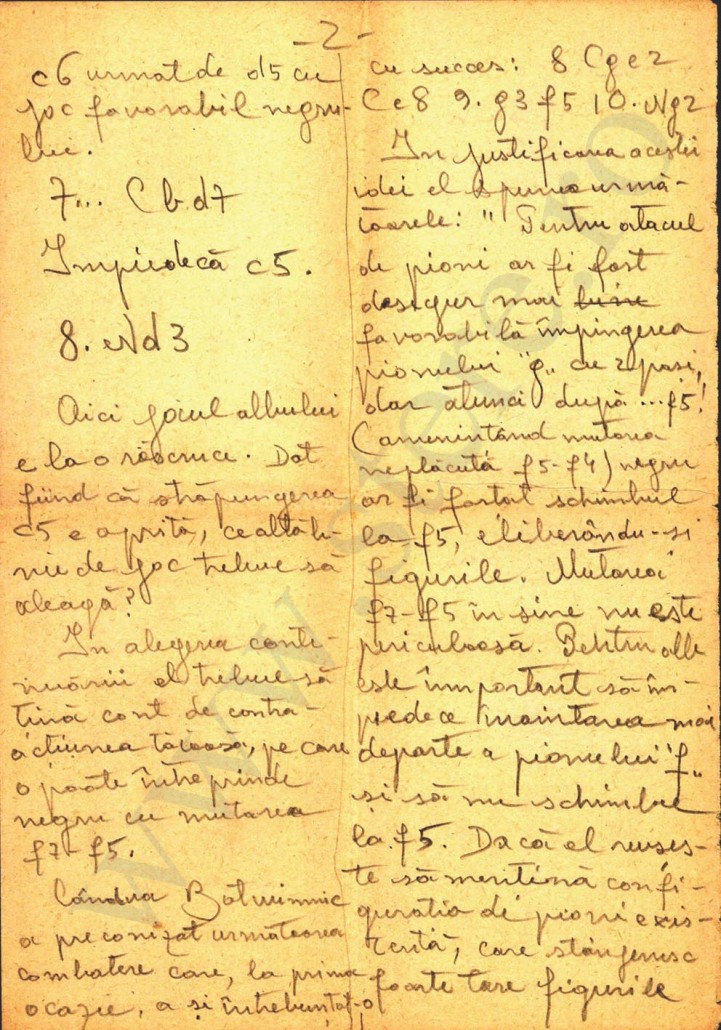 -2-
c6 urmat de d5 cu
joc favorabil negru-
lui.
7... Cbd7
Impiedecă c5.
8. Nd3
Aici jocul albului
e la o răscruce. Dat
fiind că străpungerea
c5 e oprită, ce altă li-
nie de joc trebue să
aleagă?
In alegerea conti-
nuării el trebue să
țină cont de contra-
acțiunea tăioasă, pe care
o poate întreprinde
negru cu mutarea
f7-f5.
Cândva Botvinnic
a preconizat următoarea
combatere care, la prima
ocazie, a și întrebuințat-o
cu succes: 8 Cge2
Ce8 9. g3 f5 10. Ng2
In justificarea acestei
idei el spunea urmă-
toarele: "Pentru atacul
de pioni ar fi fost
desigur mai bine
favorabilă împingerea
pionului "g" cu 2 pași,
dar atunci după ...f5!
(amenințând mutarea
neplăcută f5-f4) negru
ar fi forțat schimbul
la f5, eliberându-și
figurile. Mutarea
f7-f5 în sine nu este
periculoasă. Pentru alb
este important să îm-
pedece înaintarea mai
departe a pionului "f"
și să nu schimbe
la f5. Dacă el reușeș-
te să mențină confi-
gurația de pioni exis-
tentă, care stângenesc
foarte tare figurile
www.staro